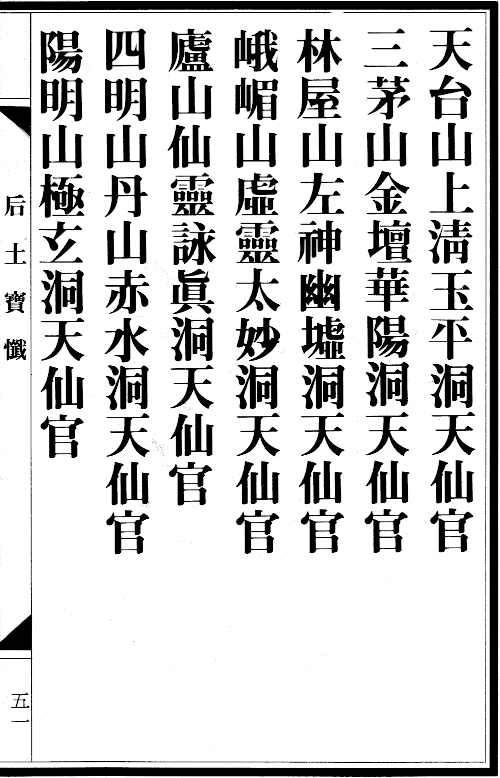 天台山上淸玉平洞天仙官
三茅山金壇華陽洞天仙官
林屋山左神幽墟洞天仙官
峨嵋山虛靈太妙洞天仙官
廬山仙靈詠眞洞天仙官
四明山丹山赤水洞天仙官
陽明山極玄洞天仙官
后土寶懺
五一